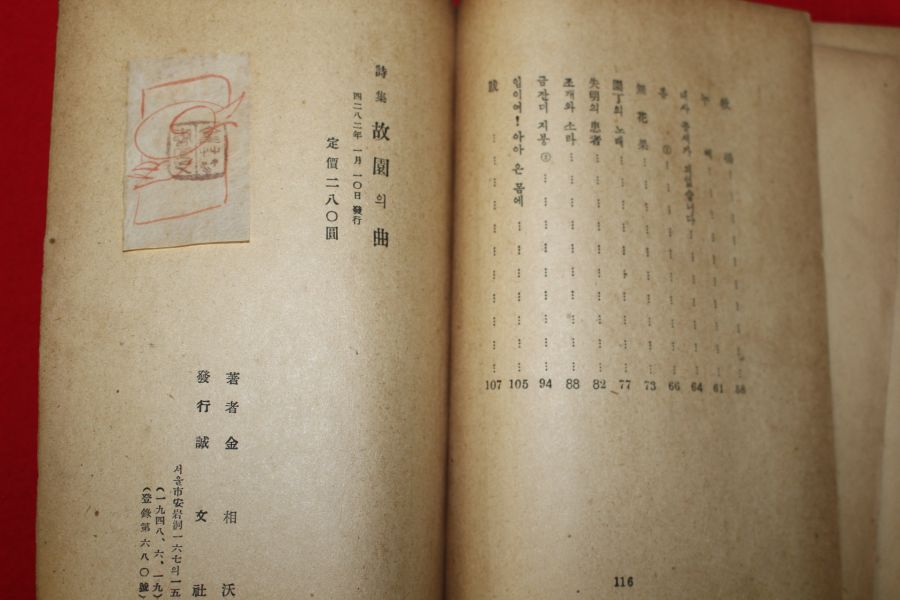 58
61
64
② 66
無花果 ⋯ 73
園丁의 노래 ⋯ 77
失明의 患者 ⋯ 82
조개와 소라 ⋯ 88
금잔디 지붕 ② ⋯ 94
임이여! 아아 온 몸에 ⋯ 105
跋 ⋯ 107
116
詩集 故園의 曲
四二八二年 一月 一〇日 發行
定價 二八〇圓
著者 金相沃
發行 誠文社
서울市安岩洞一六七의一五
(一九四八、六、一九)
(登錄第六八〇號)